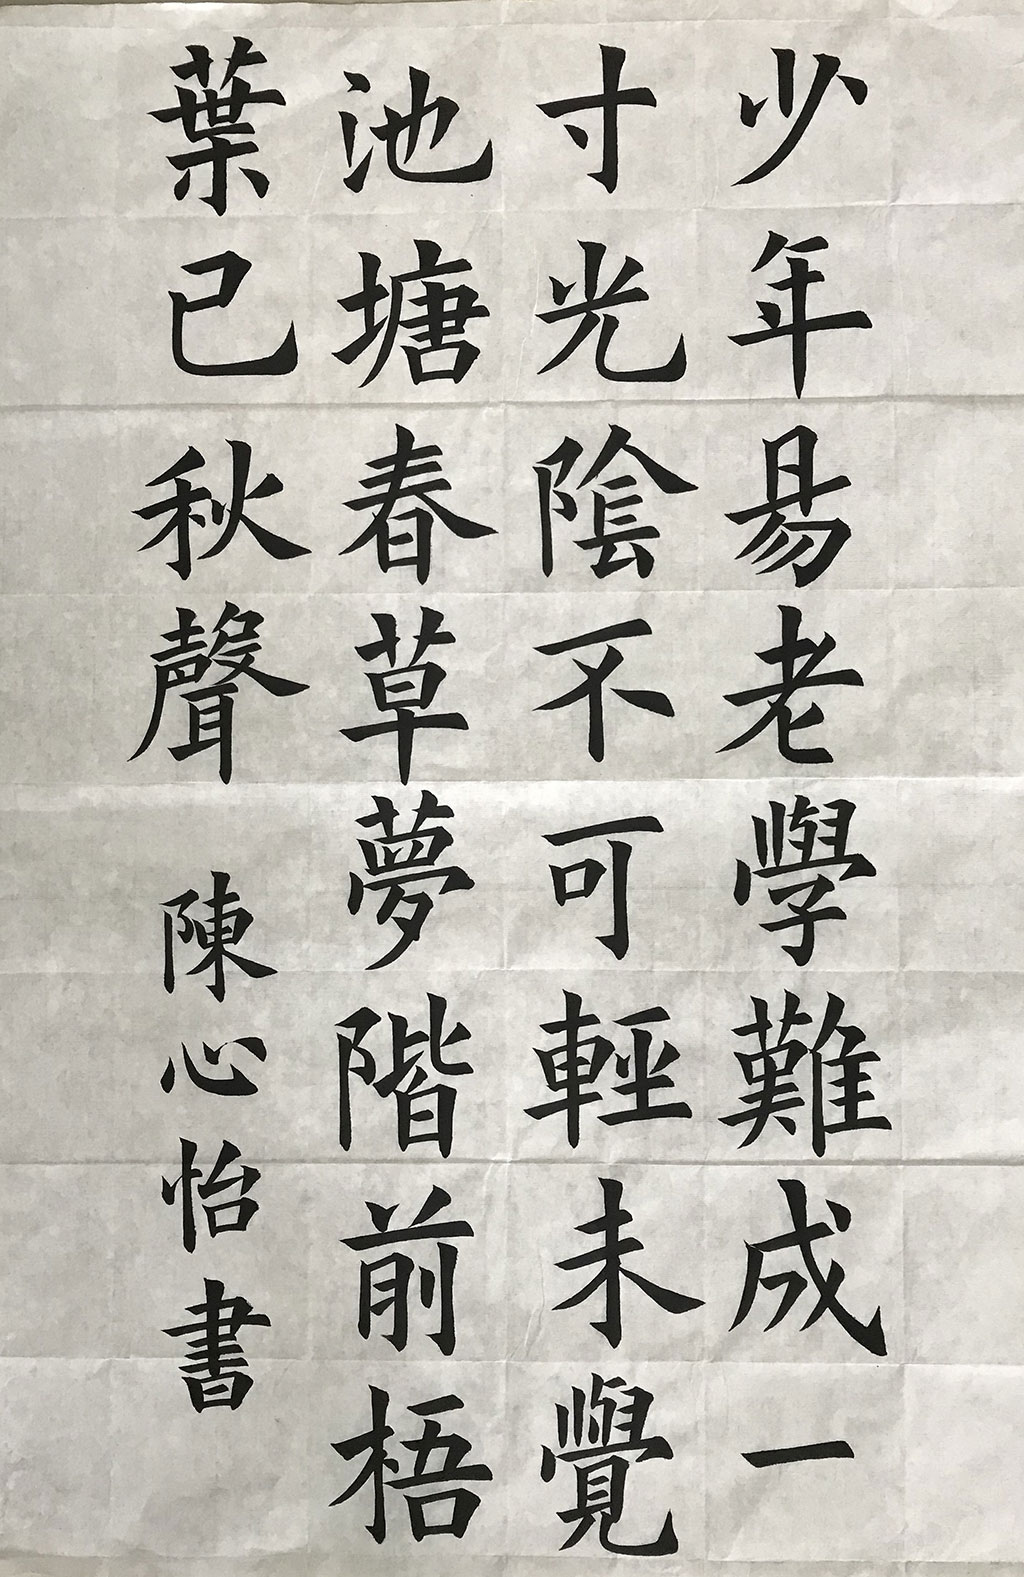 少年昜老學難成一
寸光陰不可輕未覺
池塘春草夢階前梧
葉已秋聲
陳心怡書